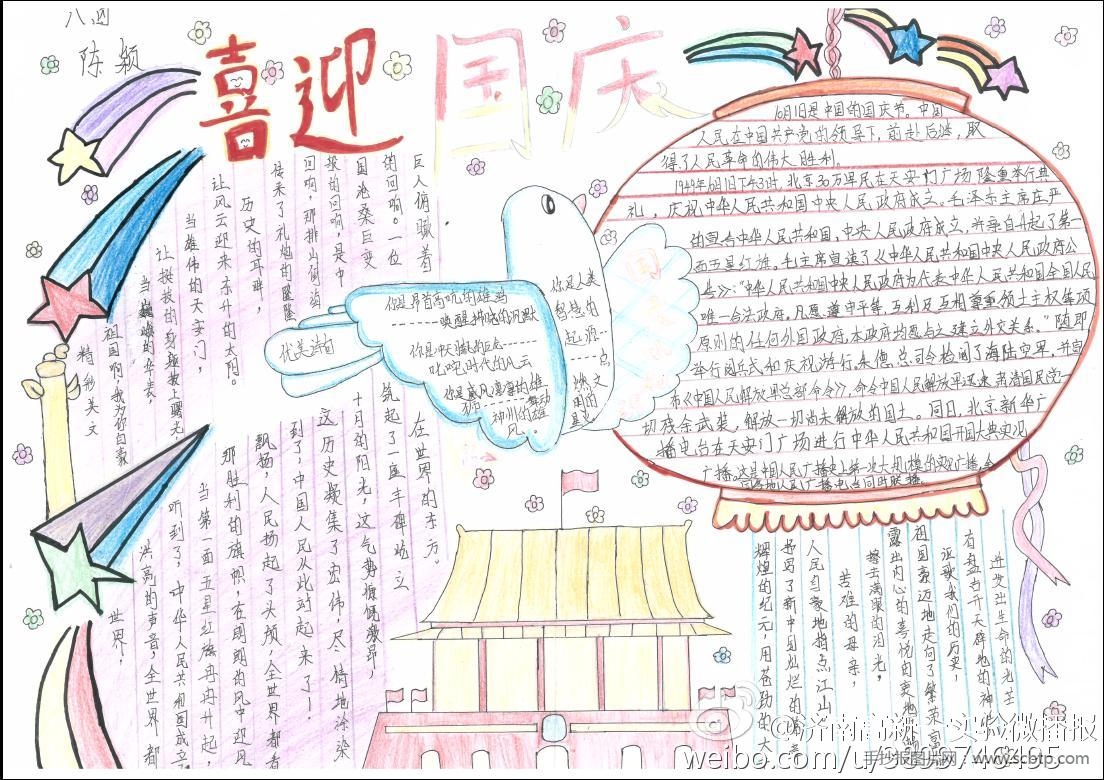 八四
陈颖
喜迎国庆
10月1日是中国的国庆节。中国
人民在中国共产党的领导下,前赴后继,取
得了人民革命的伟大胜利。
1949年10月1日下午3时,北京30万军民在天安门广场隆重举行典
礼,庆祝中华人民共和国中央人民政府成立。毛泽东主席庄严
的宣告中华人民共和国,中央人民政府成立,并亲自升起了第一
面五星红旗。毛主席宣读了《中华人民共和国中央人民政府公
告》:"中华人民共和国中央人民政府为代表中华人民共和国全国人民
唯一合法政府,凡愿遵守平等,互利及互相尊重领土主权等项
原则的任何外国政府,本政府均愿与之建立外交关系。"随即
举行阅兵式和庆祝游行,朱德总司令检阅了海陆空军,并宣
布《中国人民解放军总部命令》,命令中国人民解放军迅速肃清国民党一
切残余武装,解放一切尚未解放的国土。同日,北京新华广
播电台在天安门广场进行中华人民共和国开国大典实况
广播,这是中国人民广播史上第一次大规模的实况广播,全
国各地人民广播电台同时联播。
优美诗句
你是昂首高吭的雄鸡
唤醒拂晓的沉默
你是冲天腾飞的巨龙
叱咤时代的风云
你是威风凛凛的雄
狮
舞动
神州的雄
风。
你是人类
智慧的
起源
点
燃文
明的
星火
精彩美文
祖国啊,我为你自豪
当巍峨的华表,
让挺拔的身躯披上曙光,
当雄伟的天安门,
让风云迎来东升的太阳。
历史的耳畔,
传来了礼炮的隆隆
回响,那排山倒海
般的回响,是中
国沧桑巨变
的回响。一位
巨人俯瞰着
世界,
洪亮的声音,全世界都
听到了,中华人民共和国成立
当第一面五星红旗冉冉升起,
那胜利的旗帜,在朗朗的风中迎风
飘扬,人民扬起了头颅,全世界都看
到了,中国人民从此站起来了!
这历史凝集了宏伟,尽情地涂染
十月的阳光,这气势慷慨激昂,
筑起了一座丰碑屹立
在世界的东方。
辉煌的纪元,用苍劲的大
人民自豪地指点江山
苦难的母亲,
擦去满眼的泪光,
露出内心的喜悦
祖国豪迈地走向了繁荣富
讴歌我们的历史,
有盘古开天辟地的神
迸发出生命的光芒
@济南高新一实验微播报
手抄报图片网:www.scbtp.com